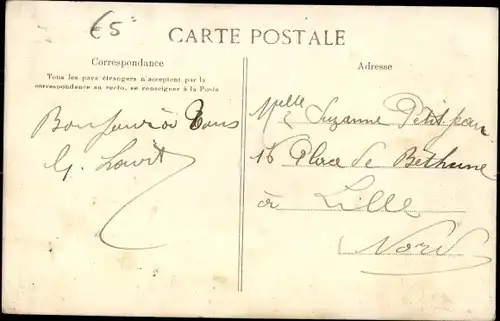 €5
CARTE POSTALE
Correspondance
Tous les pays étrangers n'acceptent pas la
correspondance au recto, se renseigner à la Poste
Bonjour à Tous
G.
Adresse
Melle Suzanne Petitjean
16 Place de Béthune
à Lille
Nord